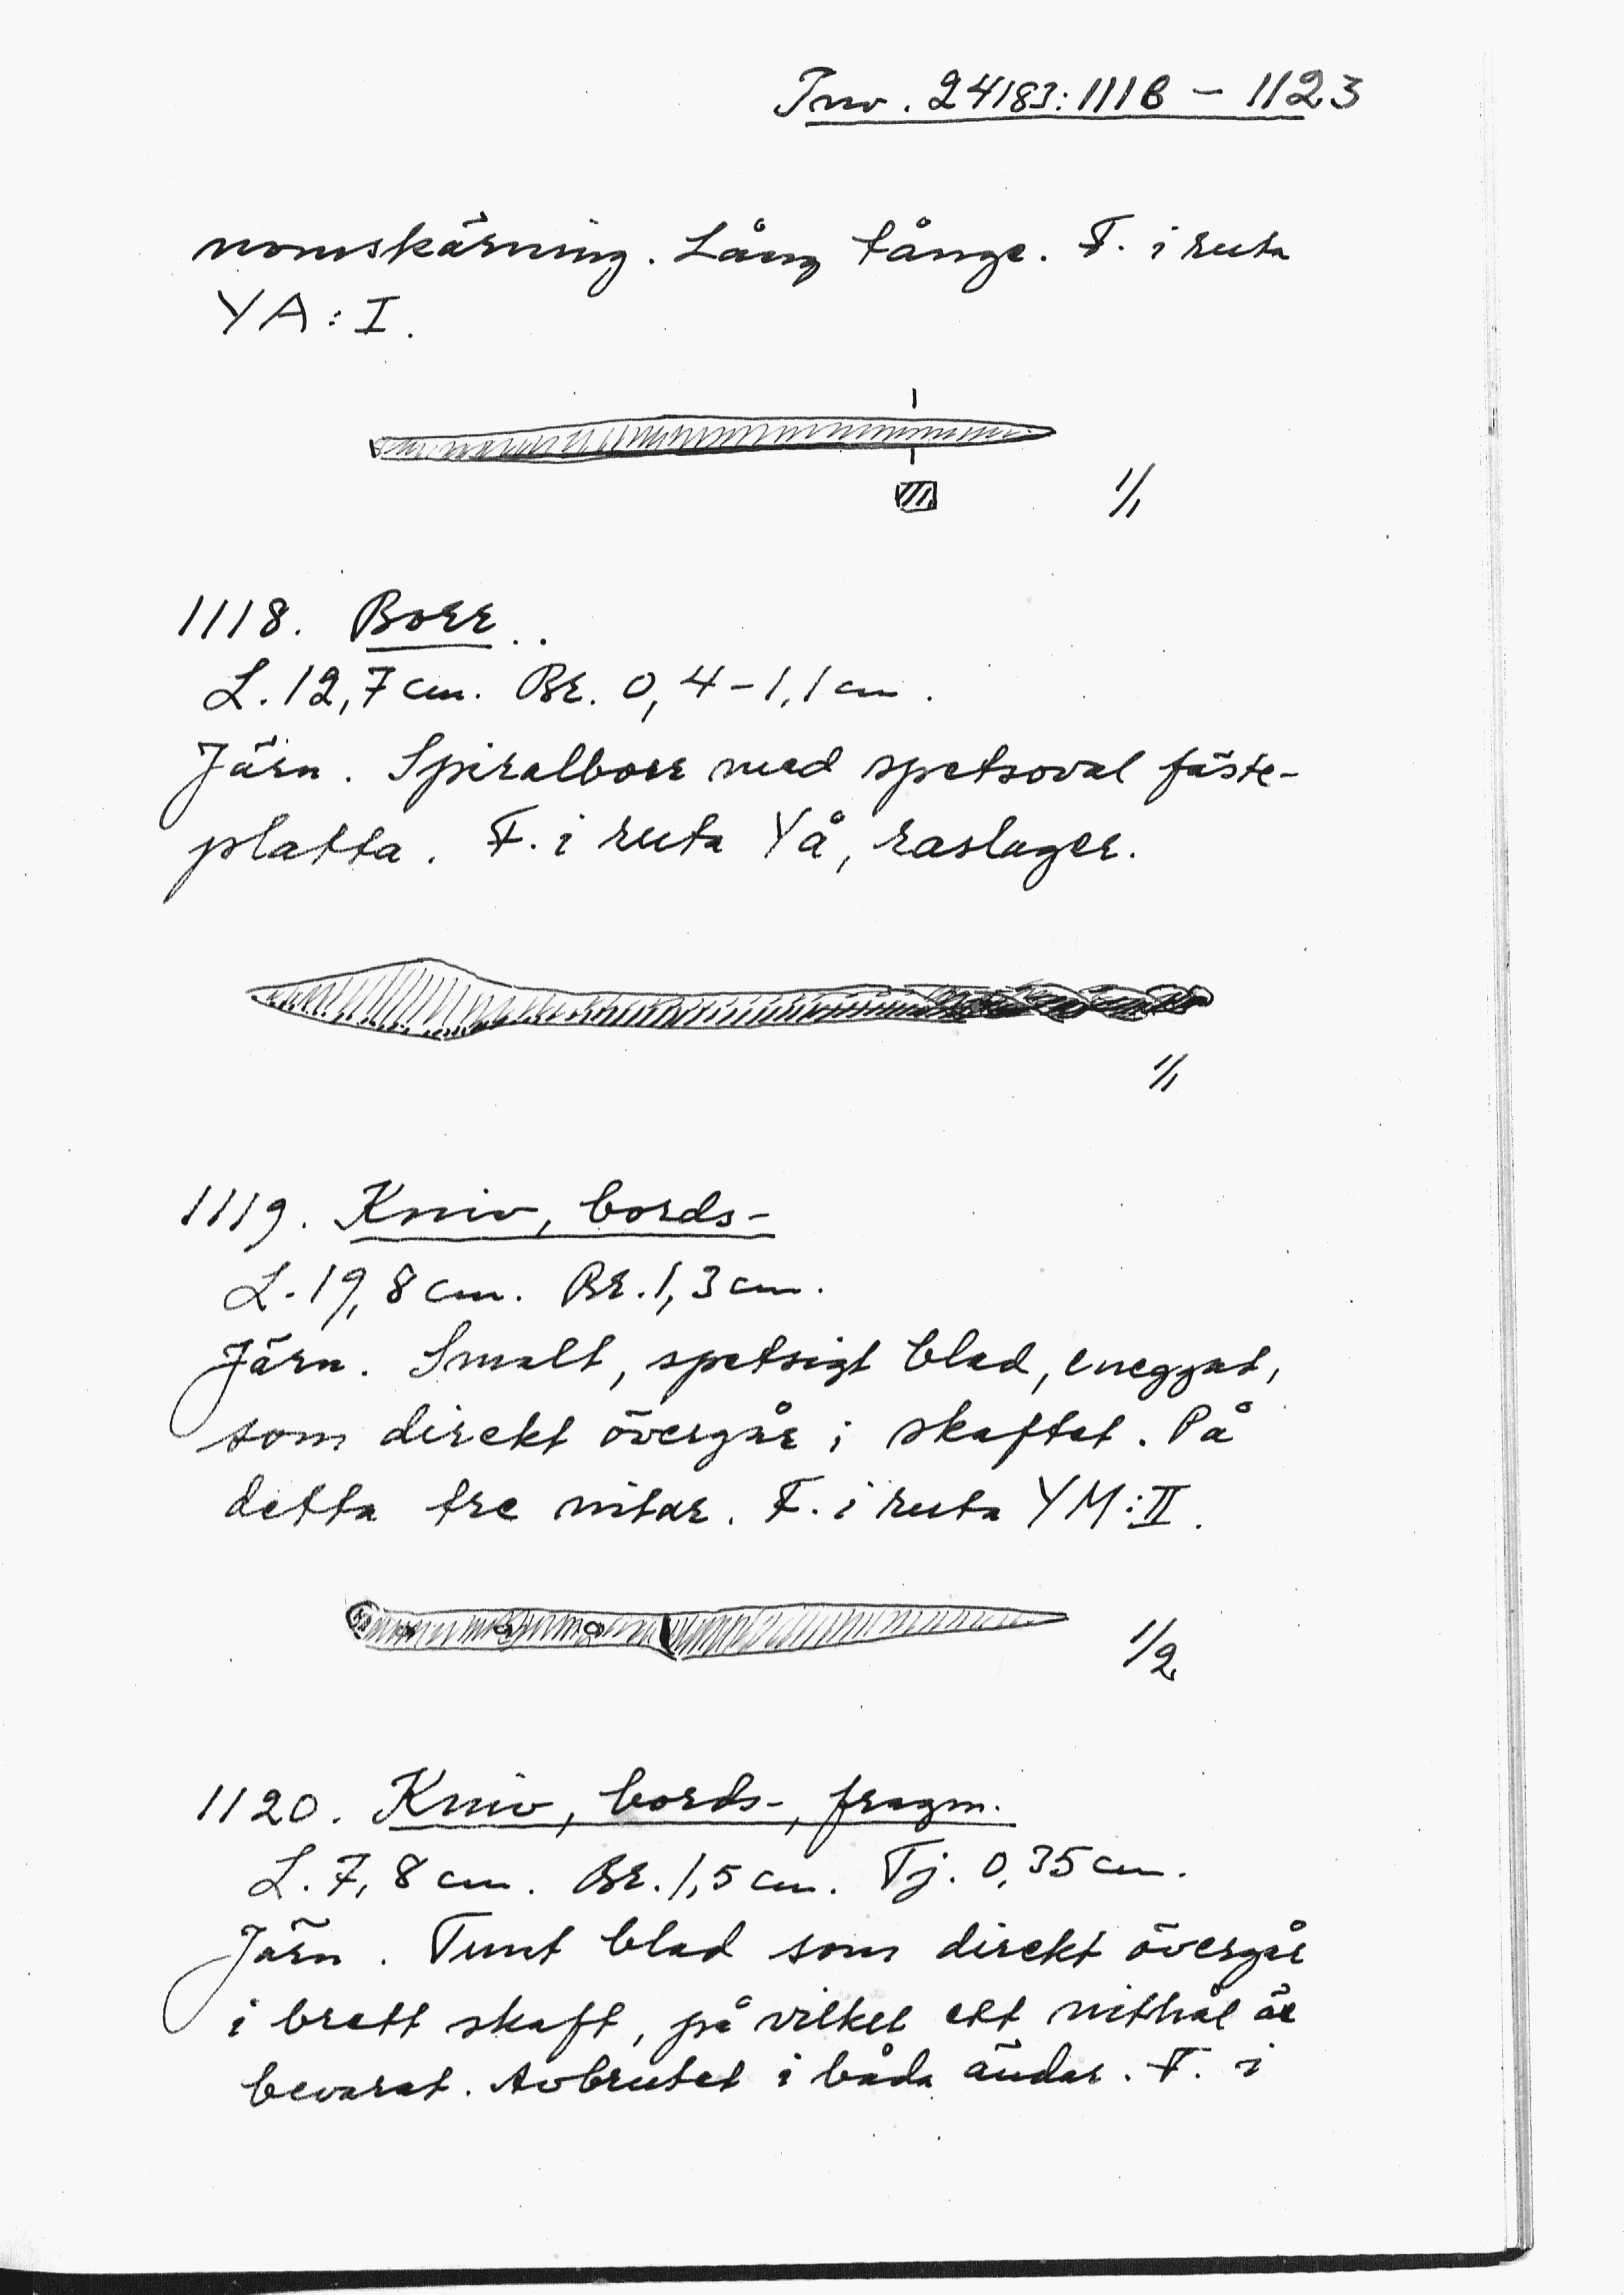 Inv. 24183:1118 – 1123
nomskärning. Lång tånge. F. i ruta
YA:I.
1/1
1118. Borr..
L. 12,7 cm. Br. 0,4-1,1 cm.
Järn. Spiralborr med spetsoval fäste-
platta. F. i ruta YÅ, raslager.
1/1
1119. Kniv, bords-
L. 19,8 cm. Br. 1,3 cm.
Järn. Smalt, spetsigt blad, eneggat,
som direkt övergår i skaftet. På
detta tre nitar. F. i ruta YM:II.
1/2
1120. Kniv, bords-, fragm.
L. 7,8 cm. Br. 1,5 cm. Tj. 0,35 cm.
Järn. Tunt blad som direkt övergår
i brett skaft, på vilket ett nithål är
bevarat. Avbrutet i båda ändar. F. i